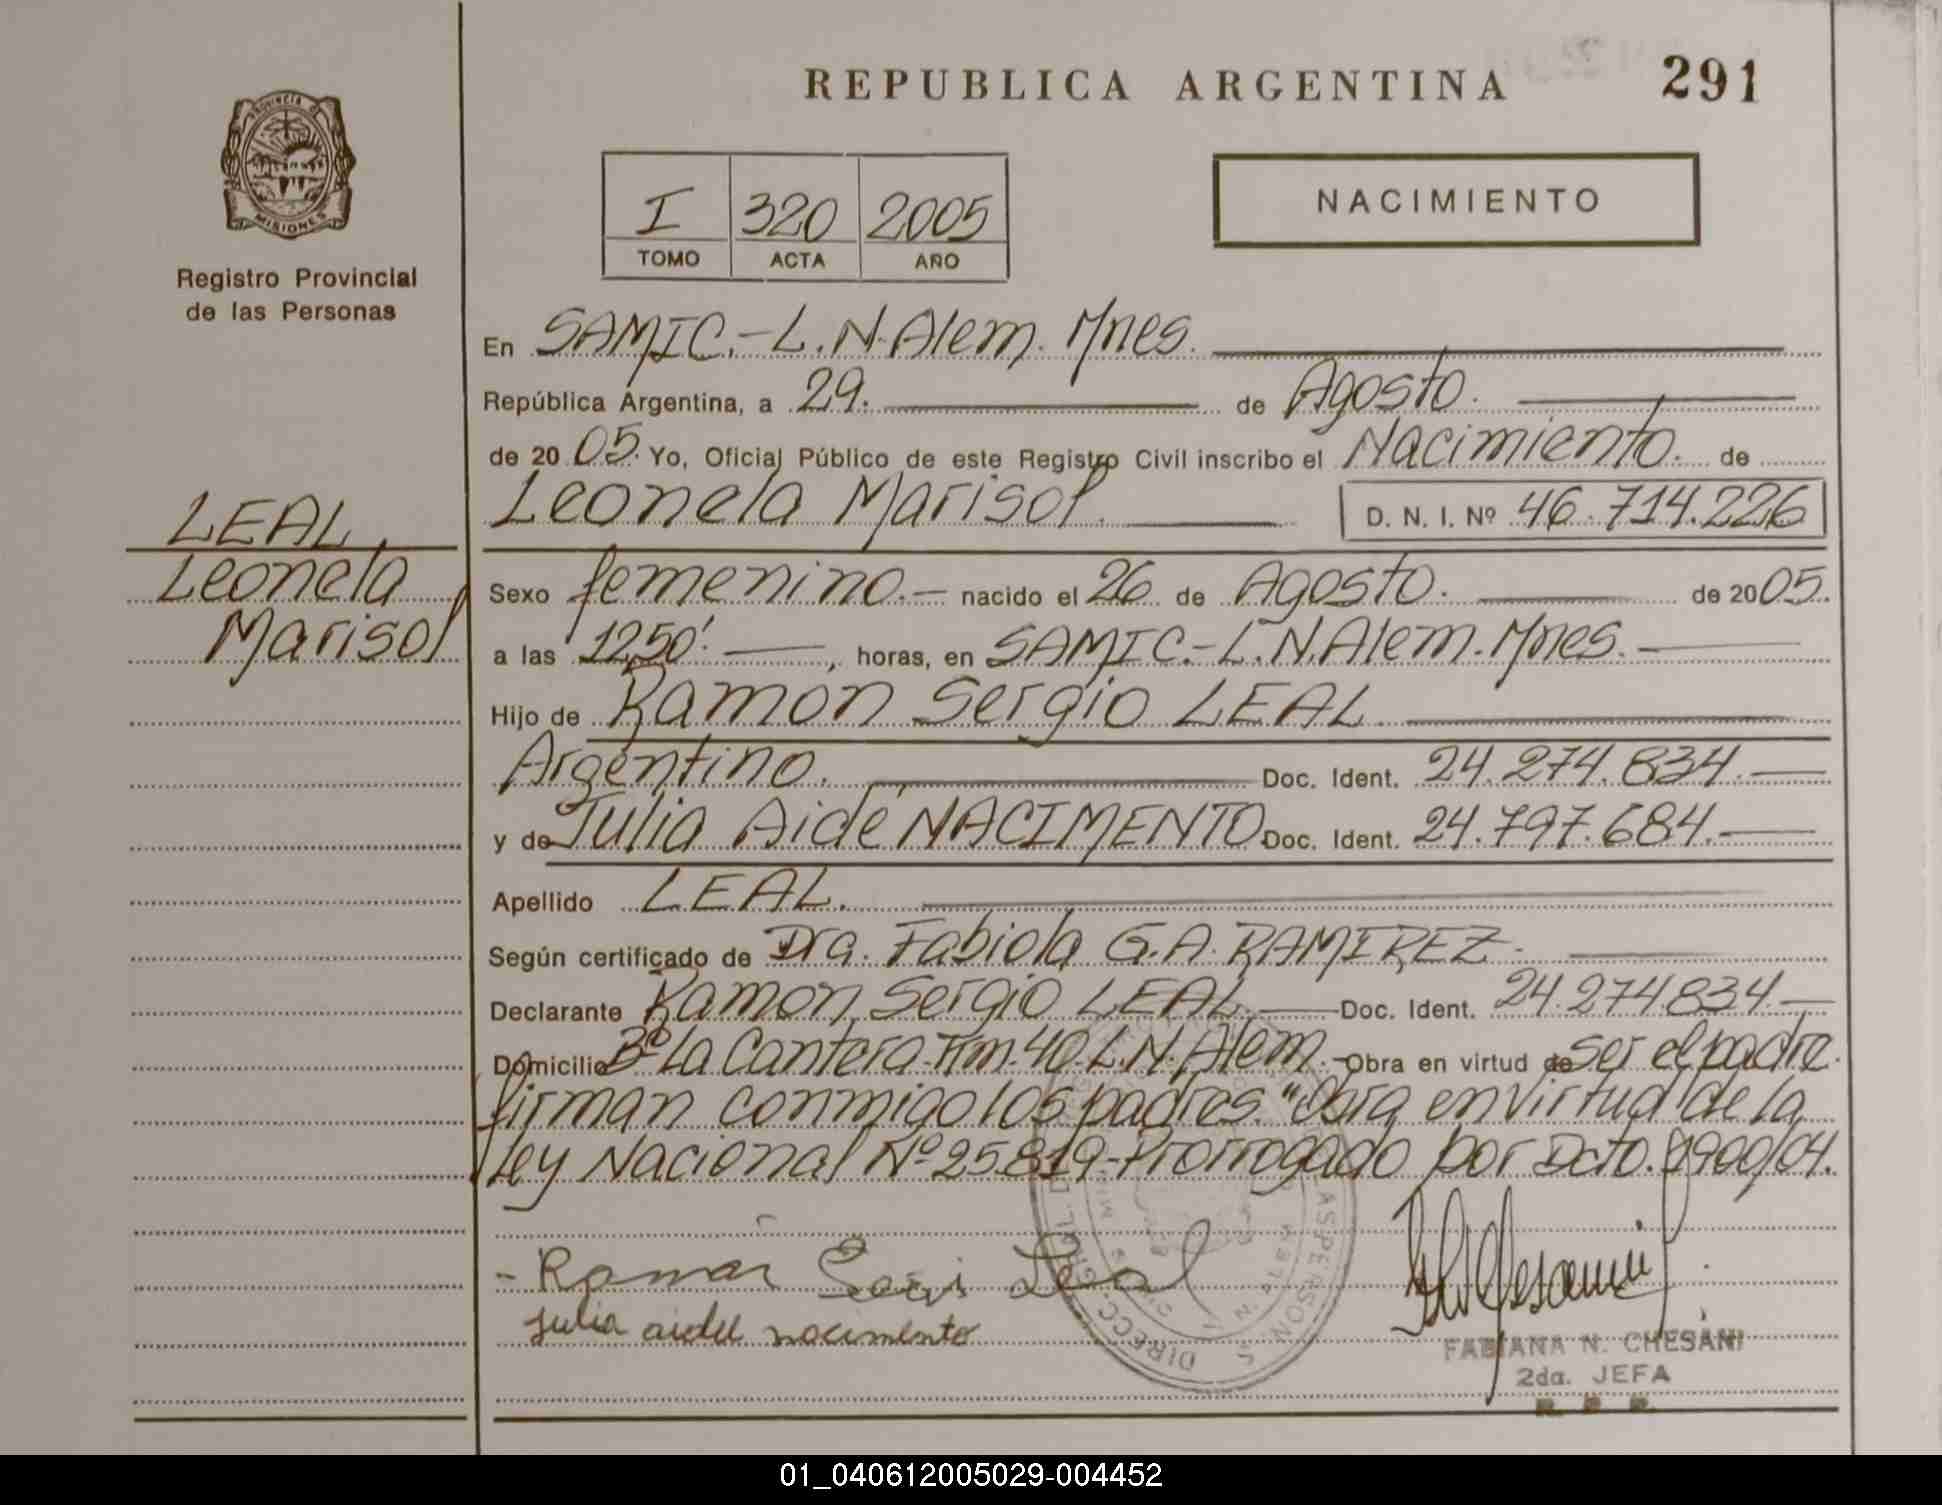 REPUBLICA ARGENTINA
291
PROVINCIA DE
MISIONES
Registro Provincial
de las Personas
I 320 2005
TOMO ACTA AÑO
NACIMIENTO
En SAMIC.-L.N.Alem. Mnes.
República Argentina, a 29. de Agosto.
de 20 05. Yo, Oficial Público de este Registro Civil inscribo el Nacimiento. de
Leonela Marisol. D. N. I. Nº 46.714.226
LEAL
Leonela
Marisol
Sexo femenino.- nacido el 26 de Agosto. de 20 05.
a las 1250'. , horas, en SAMIC.-L.N.Alem. Mnes.
Hijo de Ramón Sergio LEAL
Argentino. Doc. Ident. 24.274.834.
y de Julia Aidé NACIMENTO Doc. Ident. 24.797.684.
Apellido LEAL.
Según certificado de Dra. Fabiola G.A. RAMIREZ.
Declarante Ramón Sergio LEAL. Doc. Ident. 24.274.834.
Domicilio Bº La Cantera-Km.40.L.N.Alem.- Obra en virtud de ser el padre.
firman conmigo los padres. "Obra en virtud de la
Ley Nacional Nº 25.819-Prorrogado por Dcto. 1900/04.
- Ramón Leal
Julia aidel nacimento
FABIANA N. CHESANI
2da. JEFA
R. P. P.
01_040612005029-004452